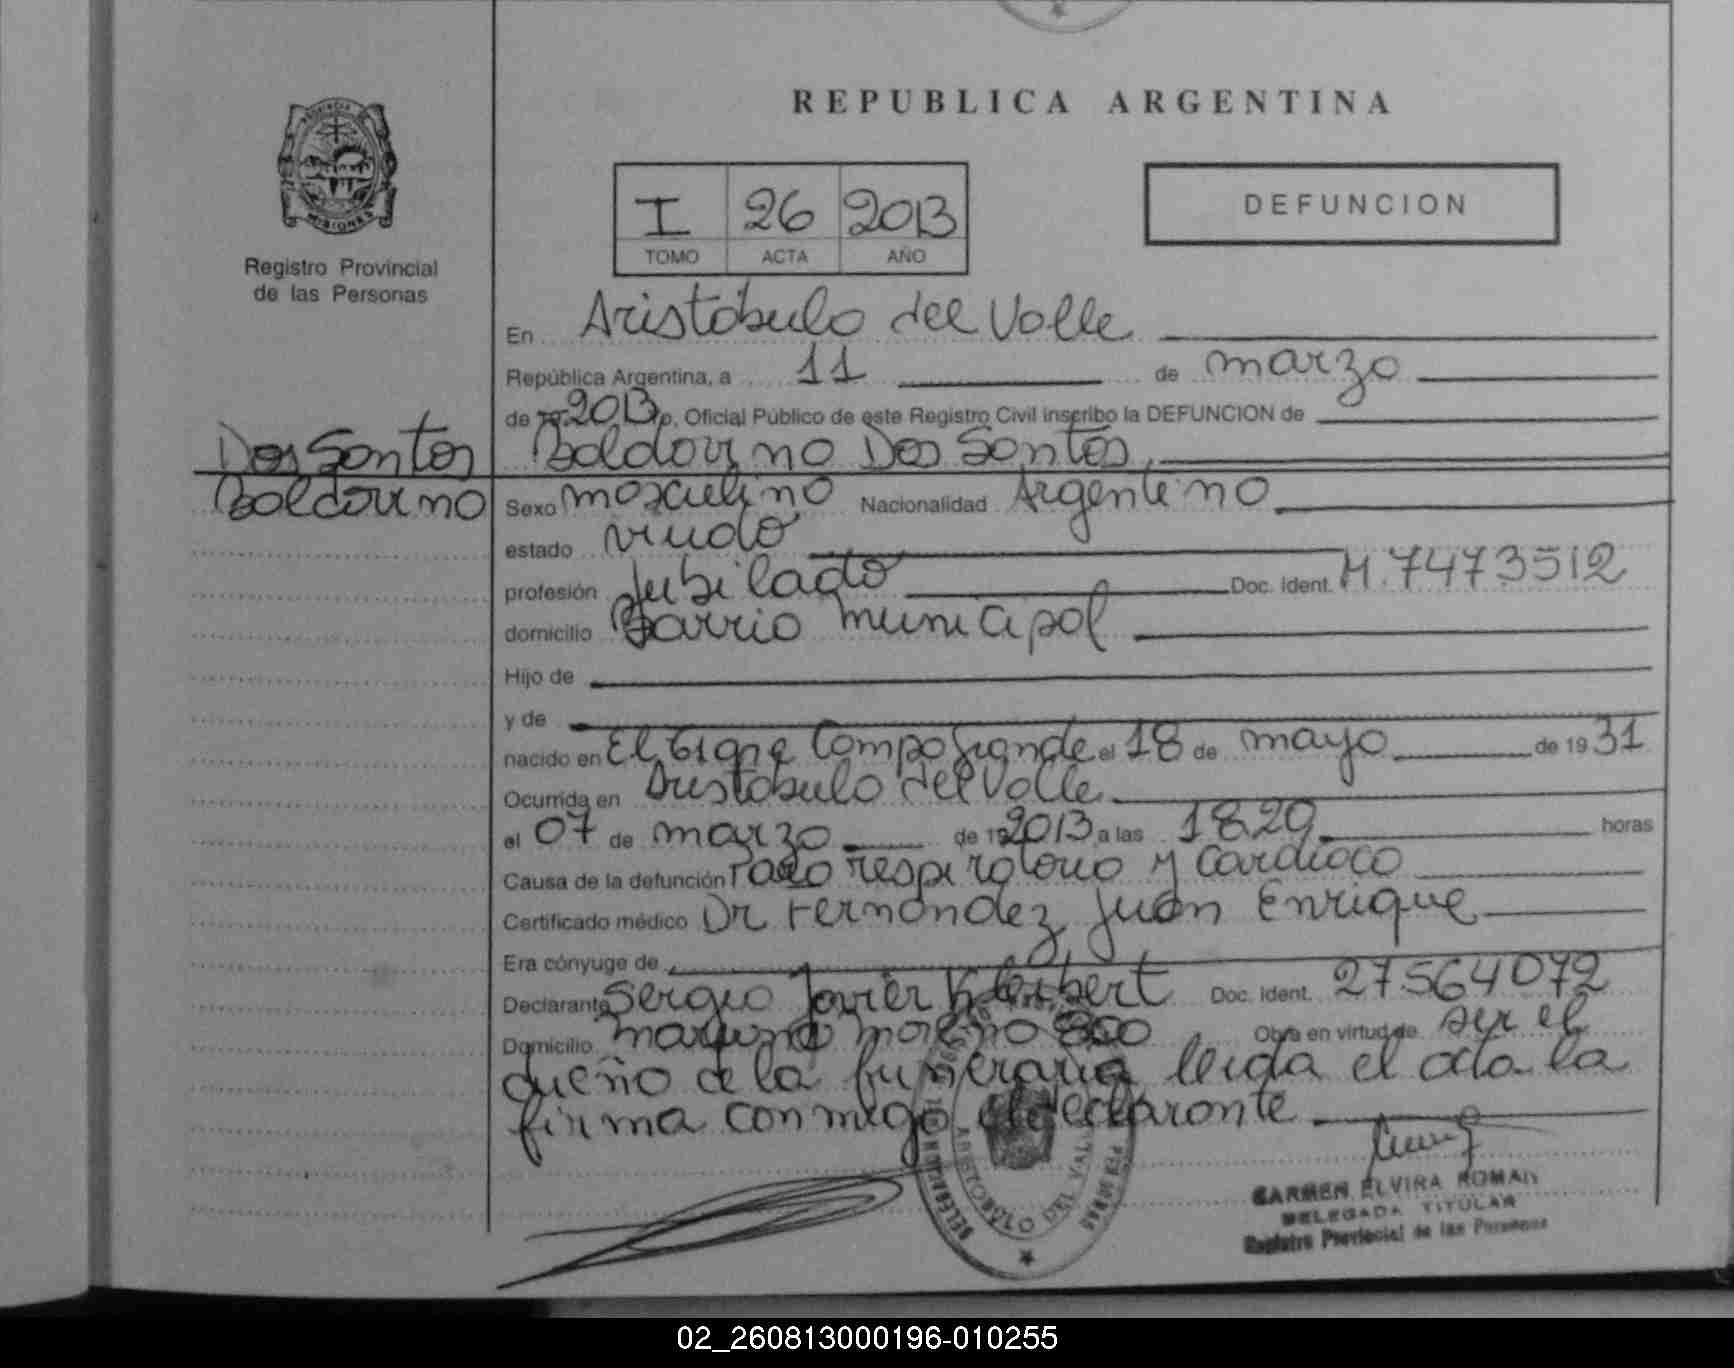 REPUBLICA ARGENTINA
PROVINCIA
MISIONES
Registro Provincial
de las Personas
I 26 2013
TOMO ACTA AÑO
DEFUNCION
En Aristóbulo del Valle
República Argentina, a 11 de marzo
de 2013, Oficial Público de este Registro Civil inscribo la DEFUNCION de
Dos Santos
Baldovino
Baldovino Dos Santos,
Sexo masculino Nacionalidad Argentino
estado viudo
profesión Jubilado Doc. Ident. M. 7473512
domicilio Barrio municipal
Hijo de
y de
nacido en El Tigre Campo Grande el 18 de mayo de 1931
Ocurrida en Aristobulo del Valle
el 07 de marzo de 2013 a las 18.20 horas
Causa de la defunción Paro respiratorio y cardiaco
Certificado médico Dr Fernandez, Juan Enrique
Era cónyuge de
Declarante Sergio Javier Doc. Ident. 27564072
Domicilio mariano moreno 800 Obra en virtud de ser el
dueño de la funeraria leida el acta la
firma conmigo el declarante
CARMEN ELVIRA ROMAN
DELEGADA TITULAR
Registro Provincial de las Personas
02_260813000196-010255